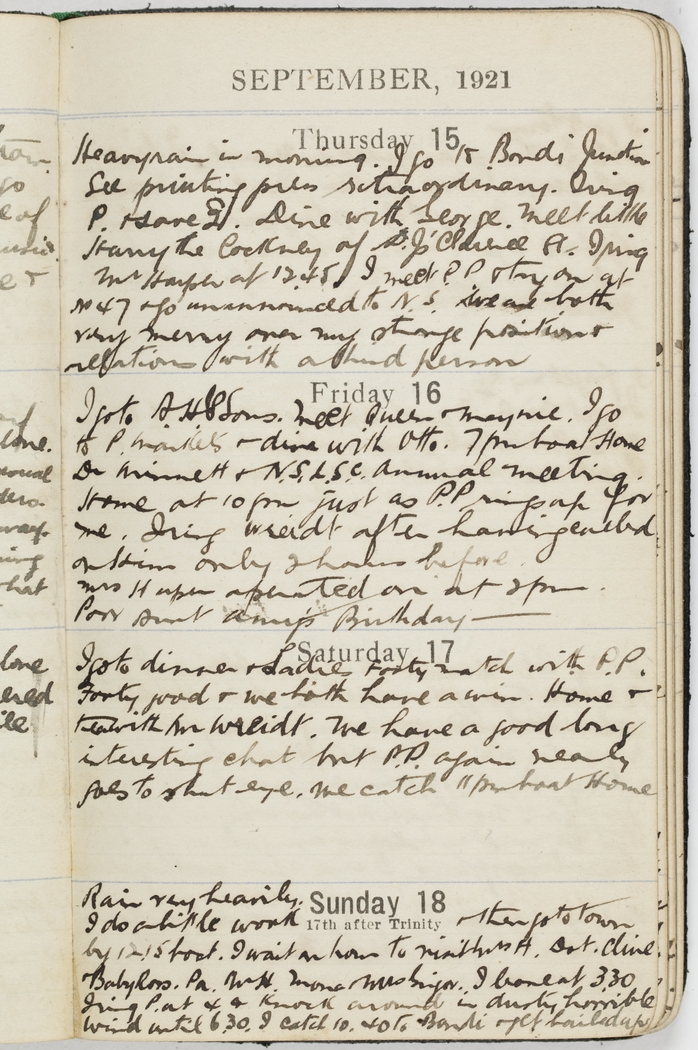 SEPTEMBER, 1921
Thursday 15
Heavy rain in morning. I go to Bondi Junction
See printing press extraordinary. I ring
P. & save £1. Dine with George. Meet little
Harry the Cockney of Clarence St. I ring
Mrs Harper at 12.45. I meet P.P & try on at
No 47 & go unannounced to N.S. We are both
very merry over my strange position &
relations with a third person
Friday 16
I go to & Sons. Meet Queen & maynie. I go
to P. markets & dine with Otto. 7 pm boat Home
Dr Minnett & N.S.L.S.C. Annual meeting.
Home at 10 pm just as P.P. rings up for
me. I ring Wreidt after having called
on Him only 2 hours before.
Mrs Harper operated on at 2 pm
Poor Aunt Amy's Birthday
Saturday 17
I go to dinner & Ladies Footy match with P.P.
Footy good & we both have a win. Home &
tea with Mr Wreidt. We have a good long
interesting chat but P.P. again nearly
goes to shut eye. We catch 11 pm boat Home
Rain very heavily.
Sunday 18
I do a little work & then go to town
17th after Trinity
by 12.15 boat. I wait an hour to visit Mrs H. Dot. Clive
& Baby Ross. Pa. W.H. Mona & Mrs . I leave at 3.30
I ring P. at 4 & Knock around in dusty, horrible
wind until 6.30. I catch 10.40 to Bondi & get boiled up